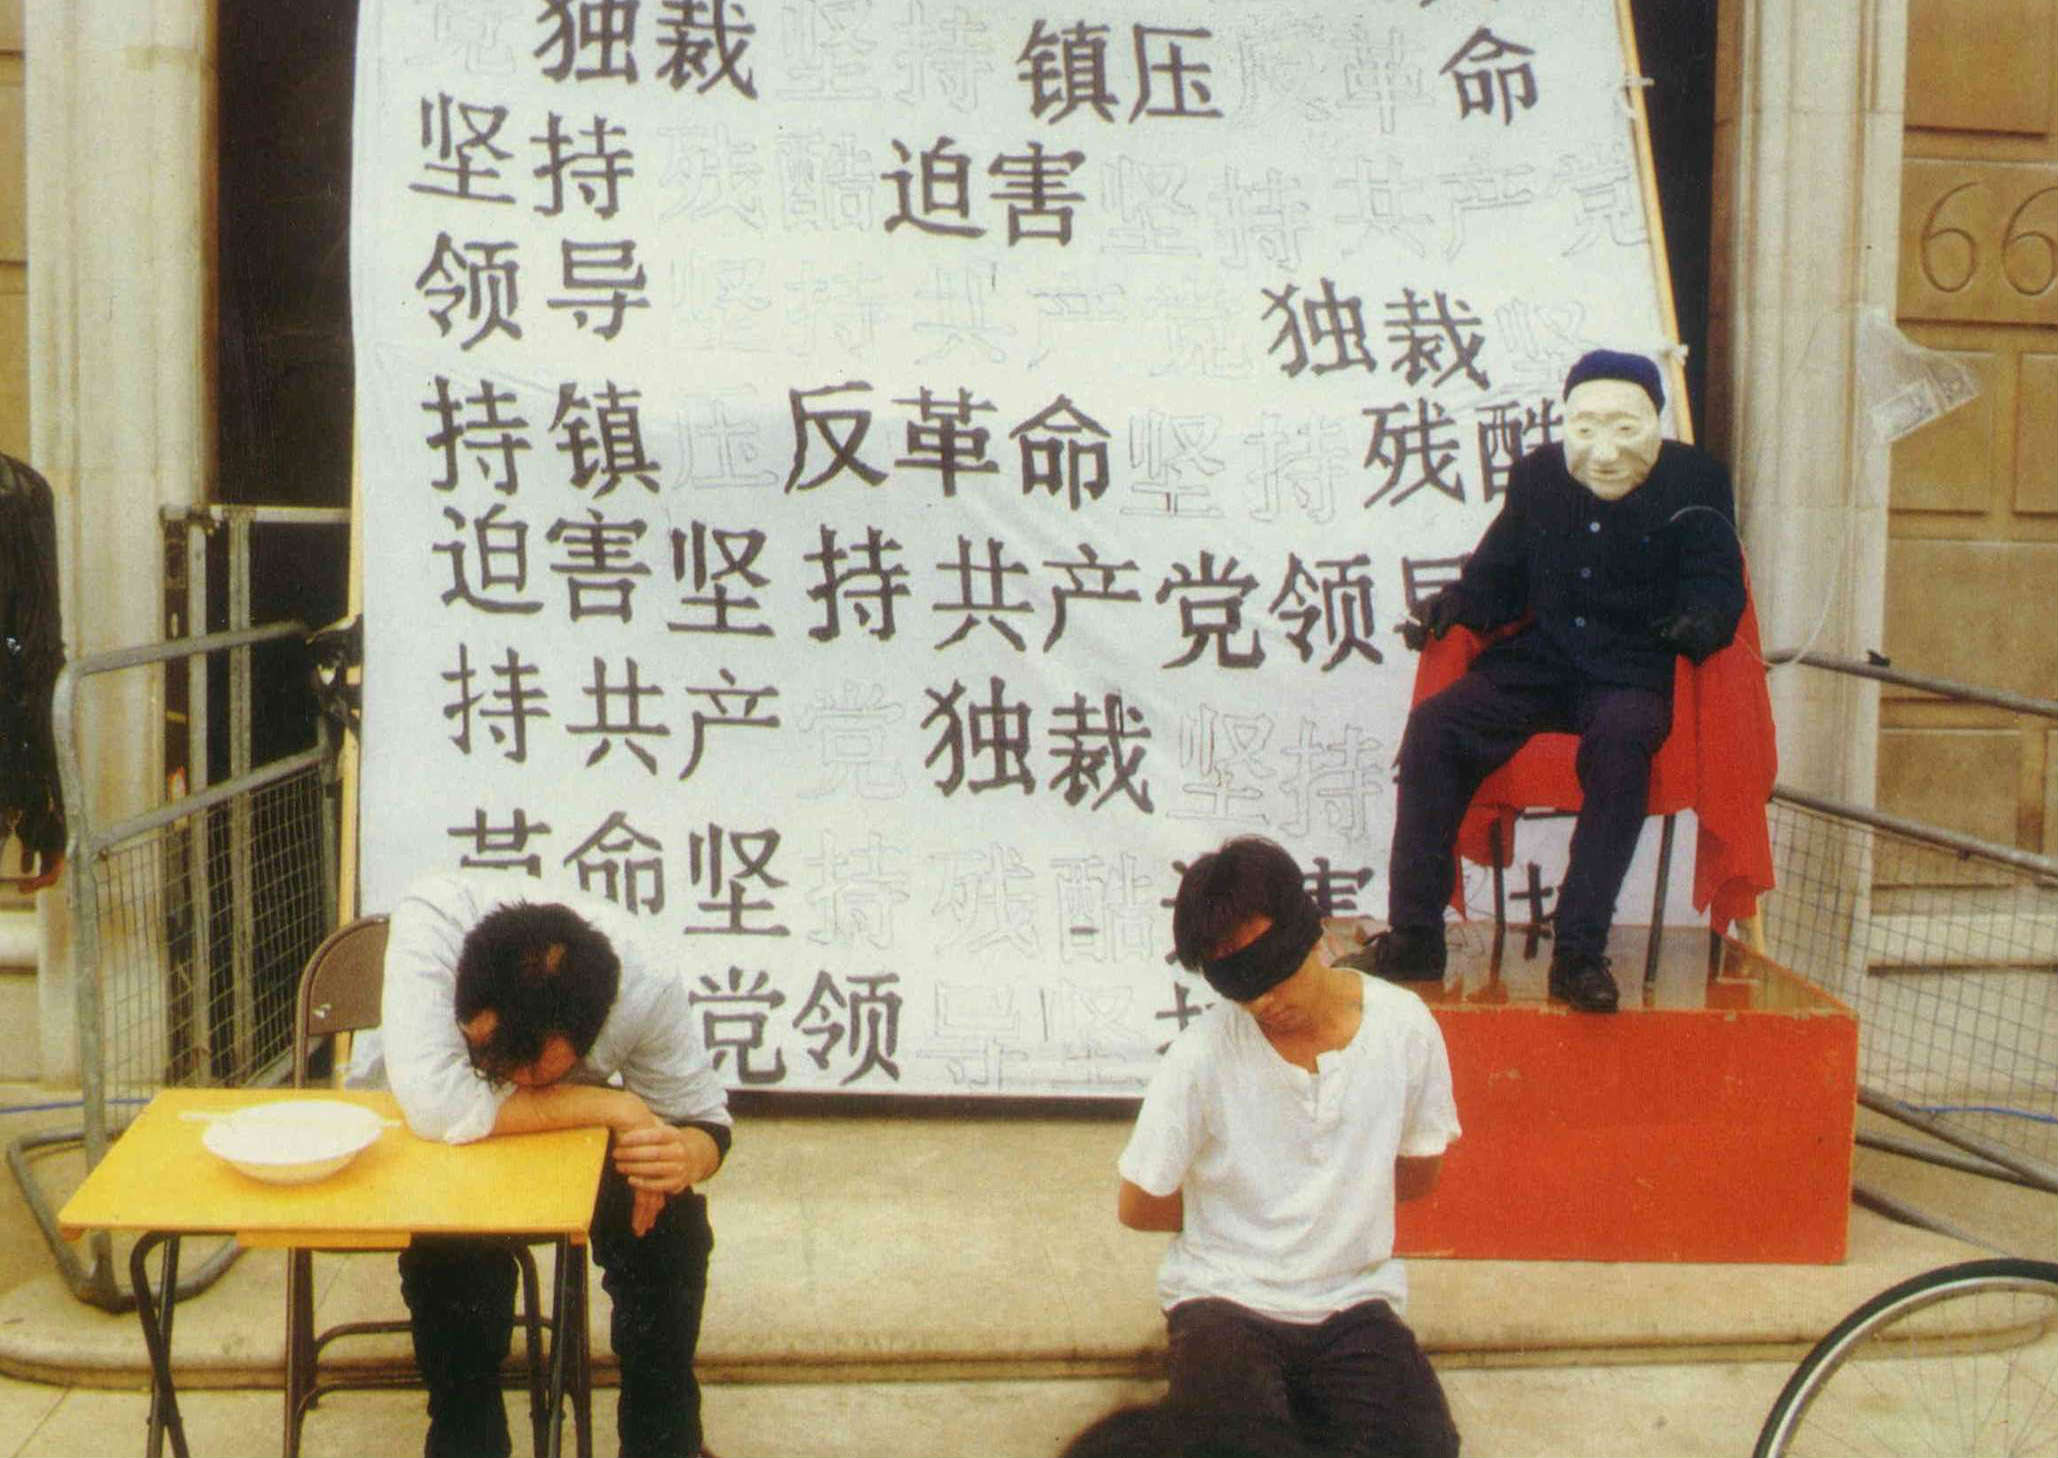 党独裁坚持镇压反革命
坚持残酷迫害坚持共产党
领导坚持共产党独裁坚
持镇压反革命坚持残酷
迫害坚持共产党领导
持共产党独裁坚持
革命坚持残酷迫害
党领导坚
66